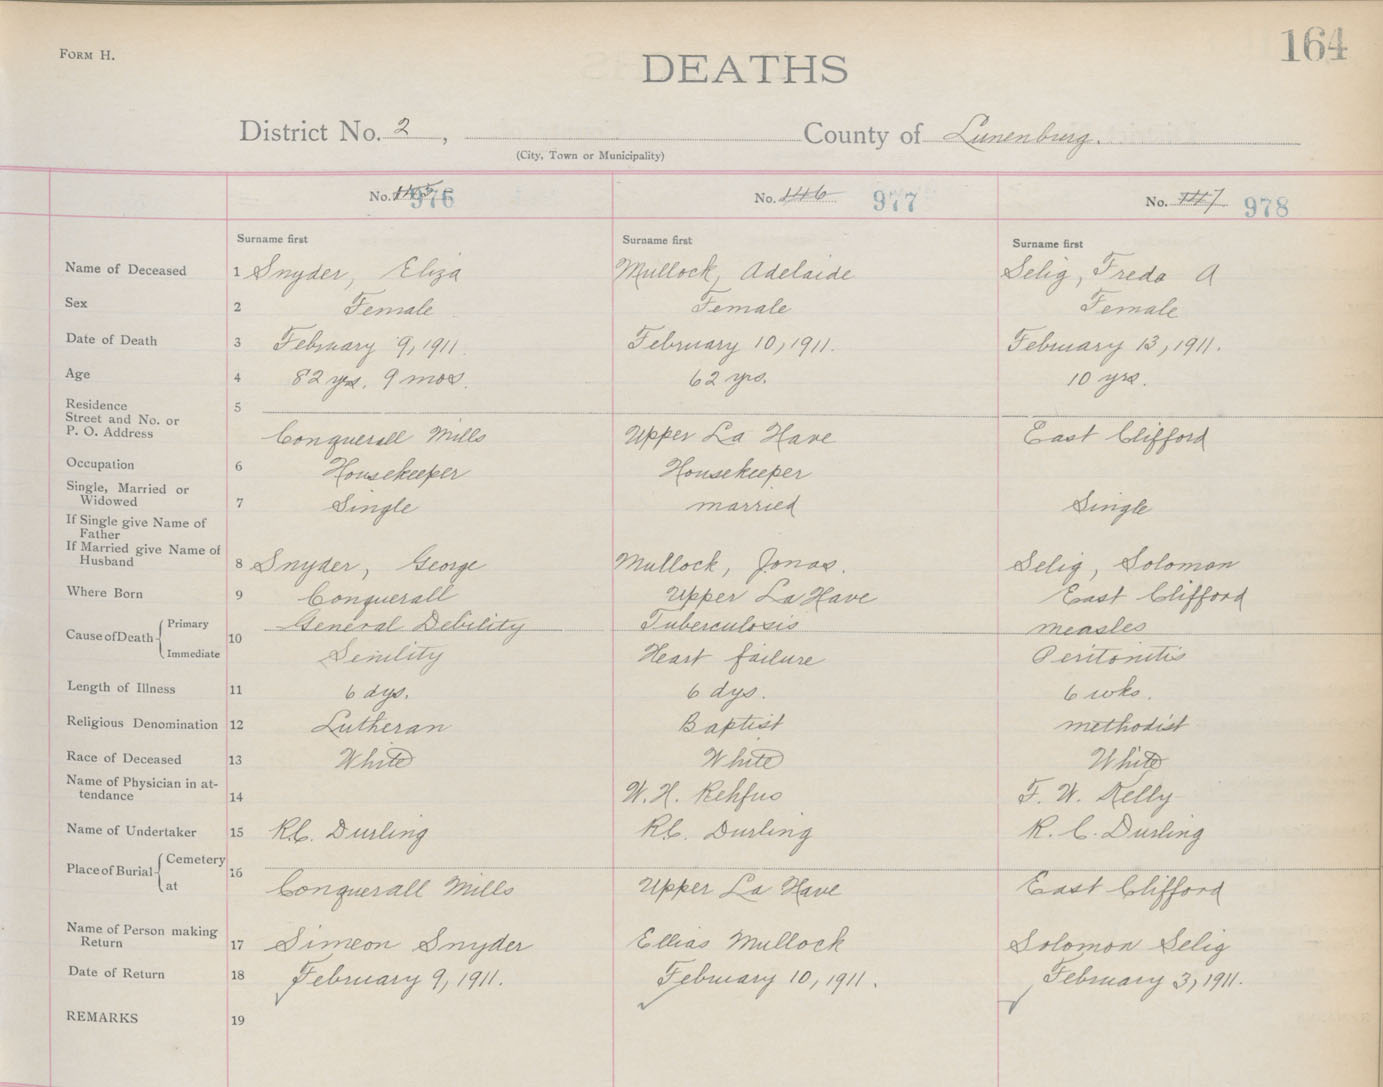 164
Form H.
DEATHS
District No. 2, County of Lunenburg.
(City, Town or Municipality)
No. 145 976 No. 146 977 No. 147 978
Surname first Surname first Surname first
Name of Deceased 1 Snyder, Eliza Mullock, Adelaide Selig, Freda A
Sex 2 Female Female Female
Date of Death 3 February 9, 1911. February 10, 1911. February 13, 1911.
Age 4 82 yrs. 9 mos. 62 yrs. 10 yrs.
Residence 5
Street and No. or
P. O. Address Conquerall Mills Upper La Have East Clifford
Occupation 6 Housekeeper Housekeeper
Single, Married or
Widowed 7 Single married Single
If Single give Name of
Father
If Married give Name of
Husband 8 Snyder, George Mullock, Jonas. Selig, Solomon
Where Born 9 Conquerall Upper La Have East Clifford
Cause of Death Primary 10 General Debility Tuberculosis measles
Immediate Senility Heart failure Peritonitis
Length of Illness 11 6 dys. 6 dys. 6 wks.
Religious Denomination 12 Lutheran Baptist methodist
Race of Deceased 13 White White White
Name of Physician in at-
tendance 14 W. H. Rehfus F. W. Kelly
Name of Undertaker 15 R.C. Durling R.C. Durling R. C. Durling
Place of Burial Cemetery 16
at Conquerall Mills Upper La Have East Clifford
Name of Person making
Return 17 Simeon Snyder Ellias Mullock Solomon Selig
Date of Return 18 February 9, 1911. February 10, 1911. February 3, 1911.
REMARKS 19